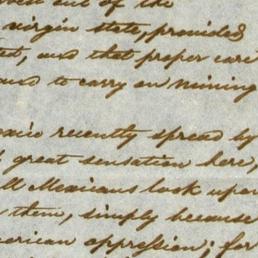 out of the
virgin state, provided
and that proper care
to carry on mining
recently spread by
great sensation here,
Mexicans look upon
them, simply because
oppression; for